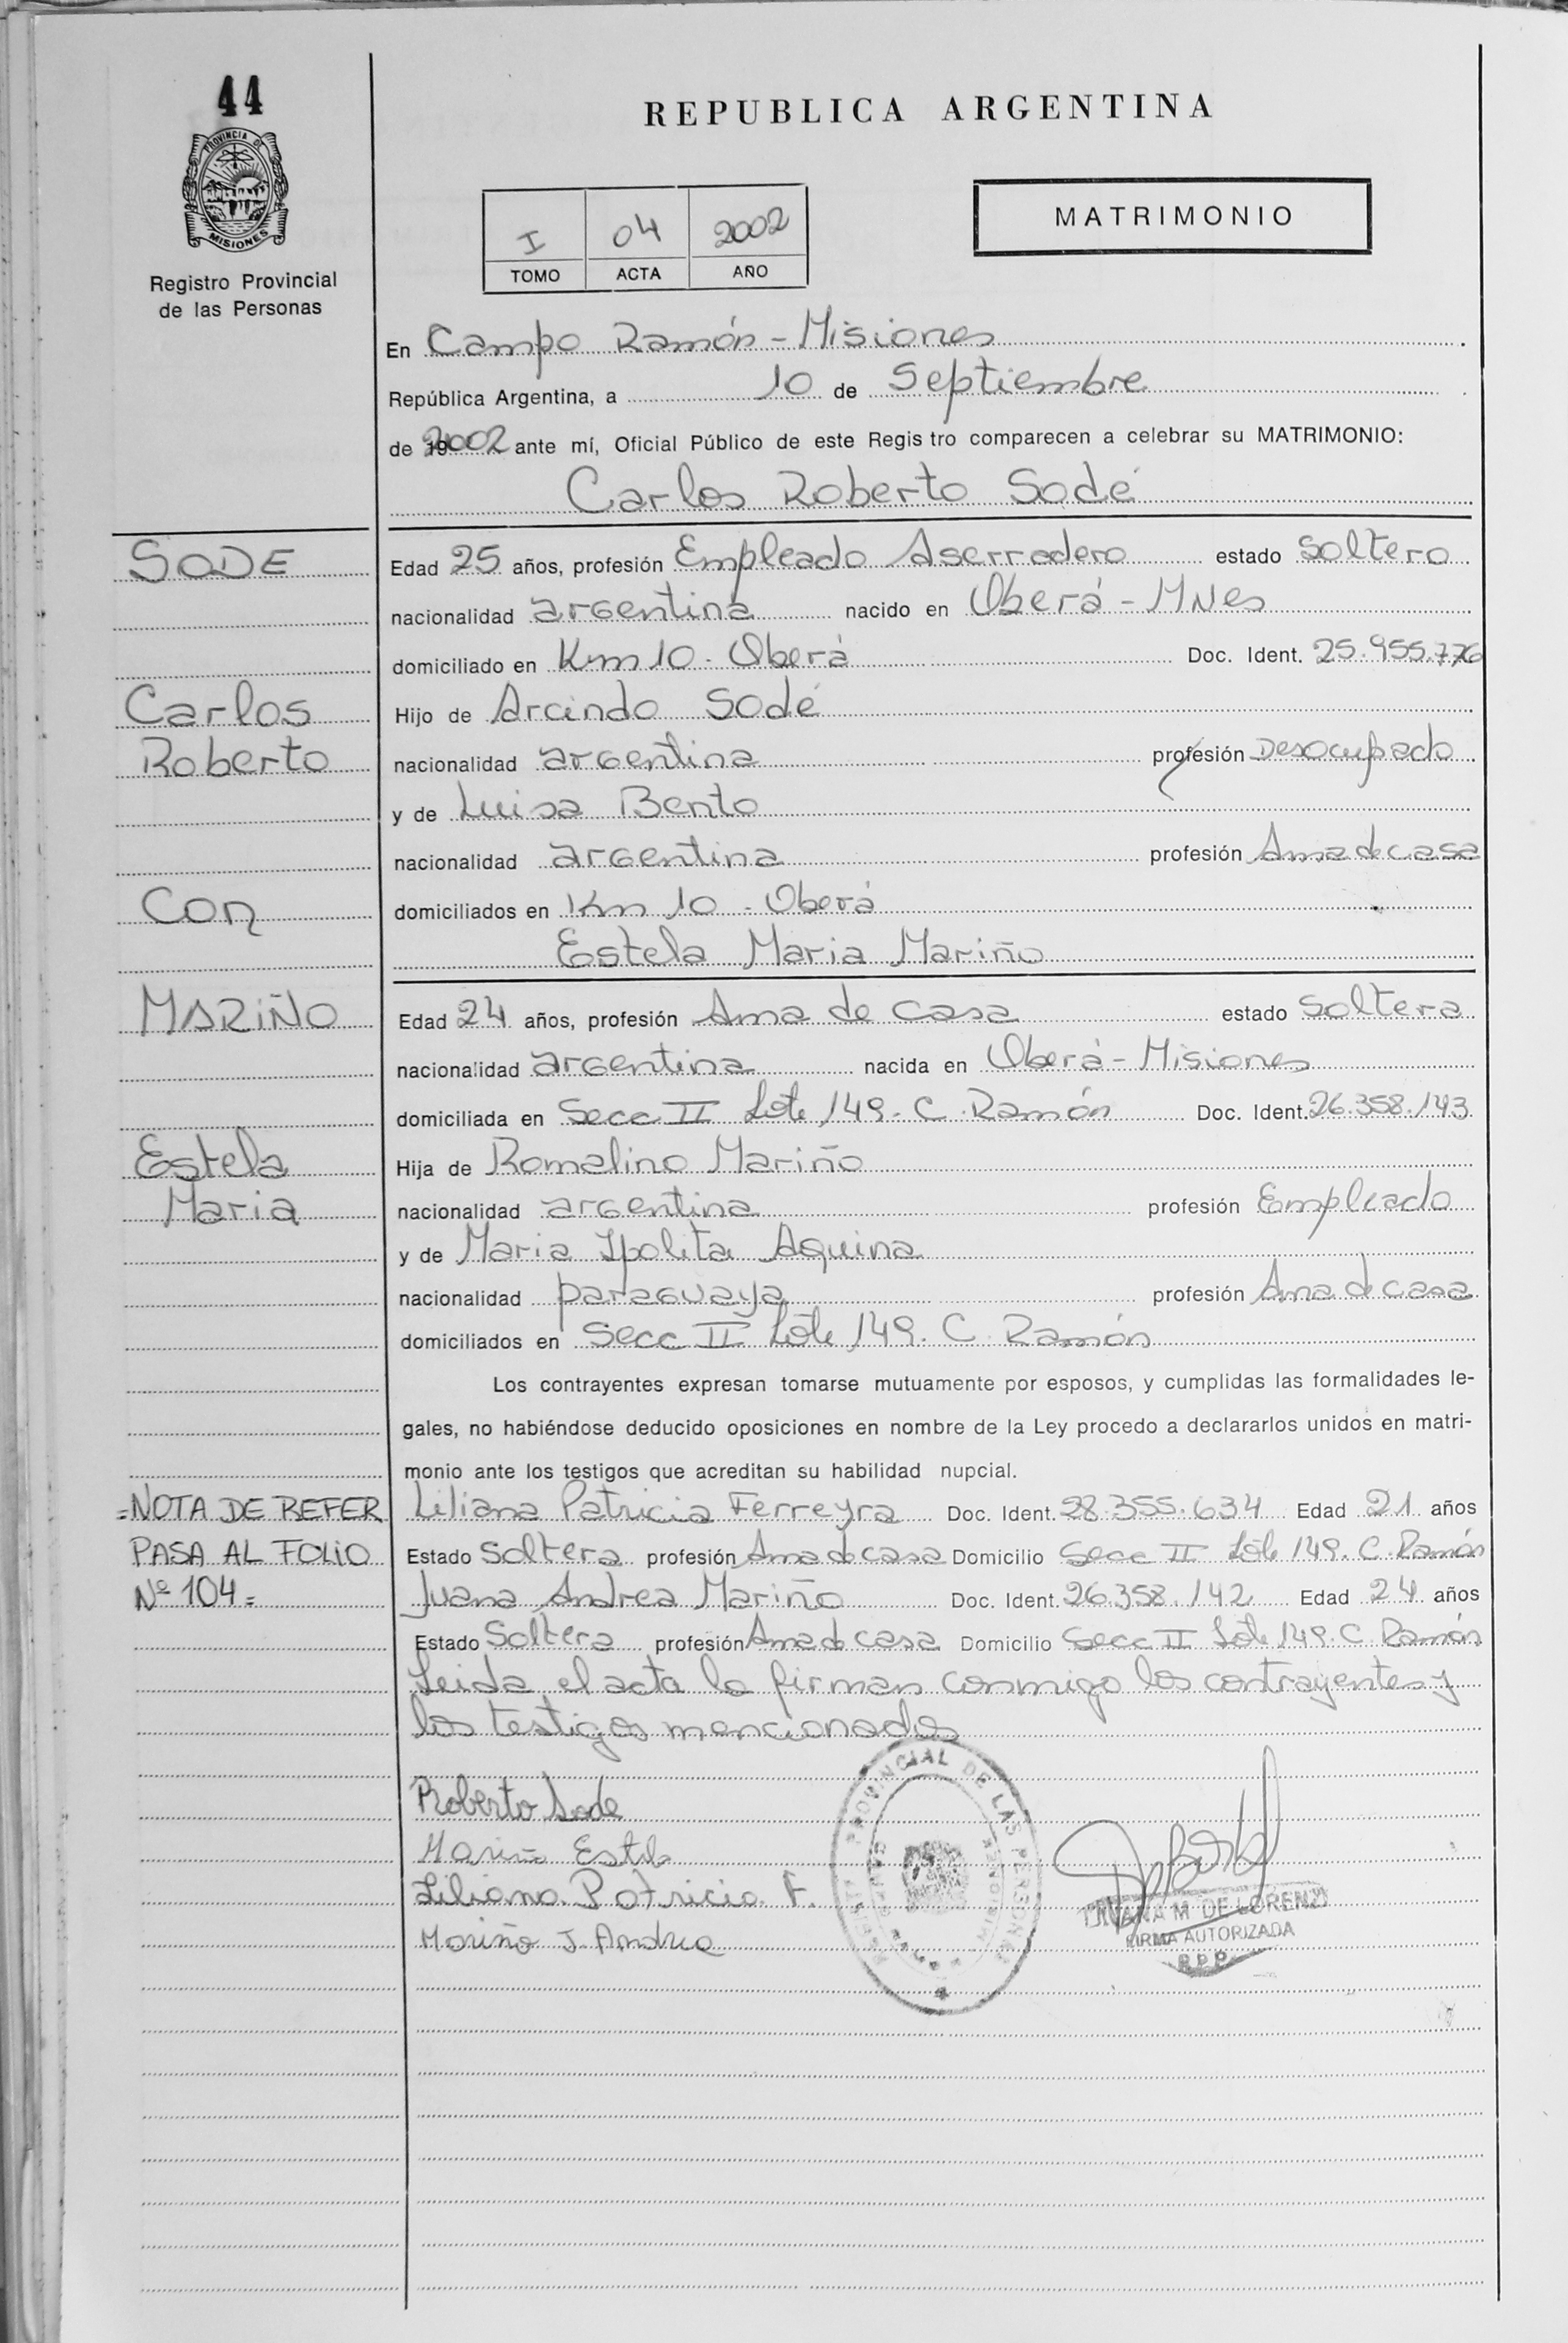 44
PROVINCIA DE
MISIONES
Registro Provincial
de las Personas
REPUBLICA ARGENTINA
I 04 2002
TOMO ACTA AÑO
MATRIMONIO
En Campo Ramón - Misiones
República Argentina, a 10 de Septiembre
de 2002 ante mí, Oficial Público de este Regis tro comparecen a celebrar su MATRIMONIO:
Carlos Roberto Sodé
SODE
Edad 25 años, profesión Empleado Aserradero estado Soltero
nacionalidad argentina nacido en Oberá - MNes
domiciliado en Km 10 - Oberá Doc. Ident. 25.955.776
Carlos
Hijo de Arcindo Sodé
Roberto
nacionalidad argentina profesión Desocupado
y de Luisa Bento
nacionalidad argentina profesión Ama de casa
Con
domiciliados en Km 10 - Oberá
Estela Maria Mariño
MARIÑO
Edad 24 años, profesión Ama de casa estado Soltera
nacionalidad argentina nacida en Oberá - Misiones
domiciliada en Secc II Lote 149 - C. Ramón Doc. Ident. 26.358.143
Estela
Hija de Romalino Mariño
Maria
nacionalidad argentina profesión Empleado
y de Maria Ipolita Aquina
nacionalidad paraguaya profesión Ama de casa
domiciliados en Secc II Lote 149. C. Ramón
Los contrayentes expresan tomarse mutuamente por esposos, y cumplidas las formalidades le-
gales, no habiéndose deducido oposiciones en nombre de la Ley procedo a declararlos unidos en matri-
monio ante los testigos que acreditan su habilidad nupcial.
=NOTA DE REFER
Liliana Patricia Ferreyra Doc. Ident. 28.355.634 Edad 21 años
PASA AL FOLIO
Estado Soltera profesión Ama de casa Domicilio Secc II Lote 149. C. Ramón
Nº 104=
Juana Andrea Mariño Doc. Ident. 26.358.142 Edad 24 años
Estado Soltera profesión Ama de casa Domicilio Secc II Lote 149. C. Ramón
Leida el acta la firman conmigo los contrayentes y
los testigos mencionados
Roberto Sode
Mariño Estela
Liliana Patricia F.
Mariño J. Andrea
PROVINCIAL DE LAS PERSONAS
MISIONES
M. DE LORENZI
FIRMA AUTORIZADA
R.P.P.